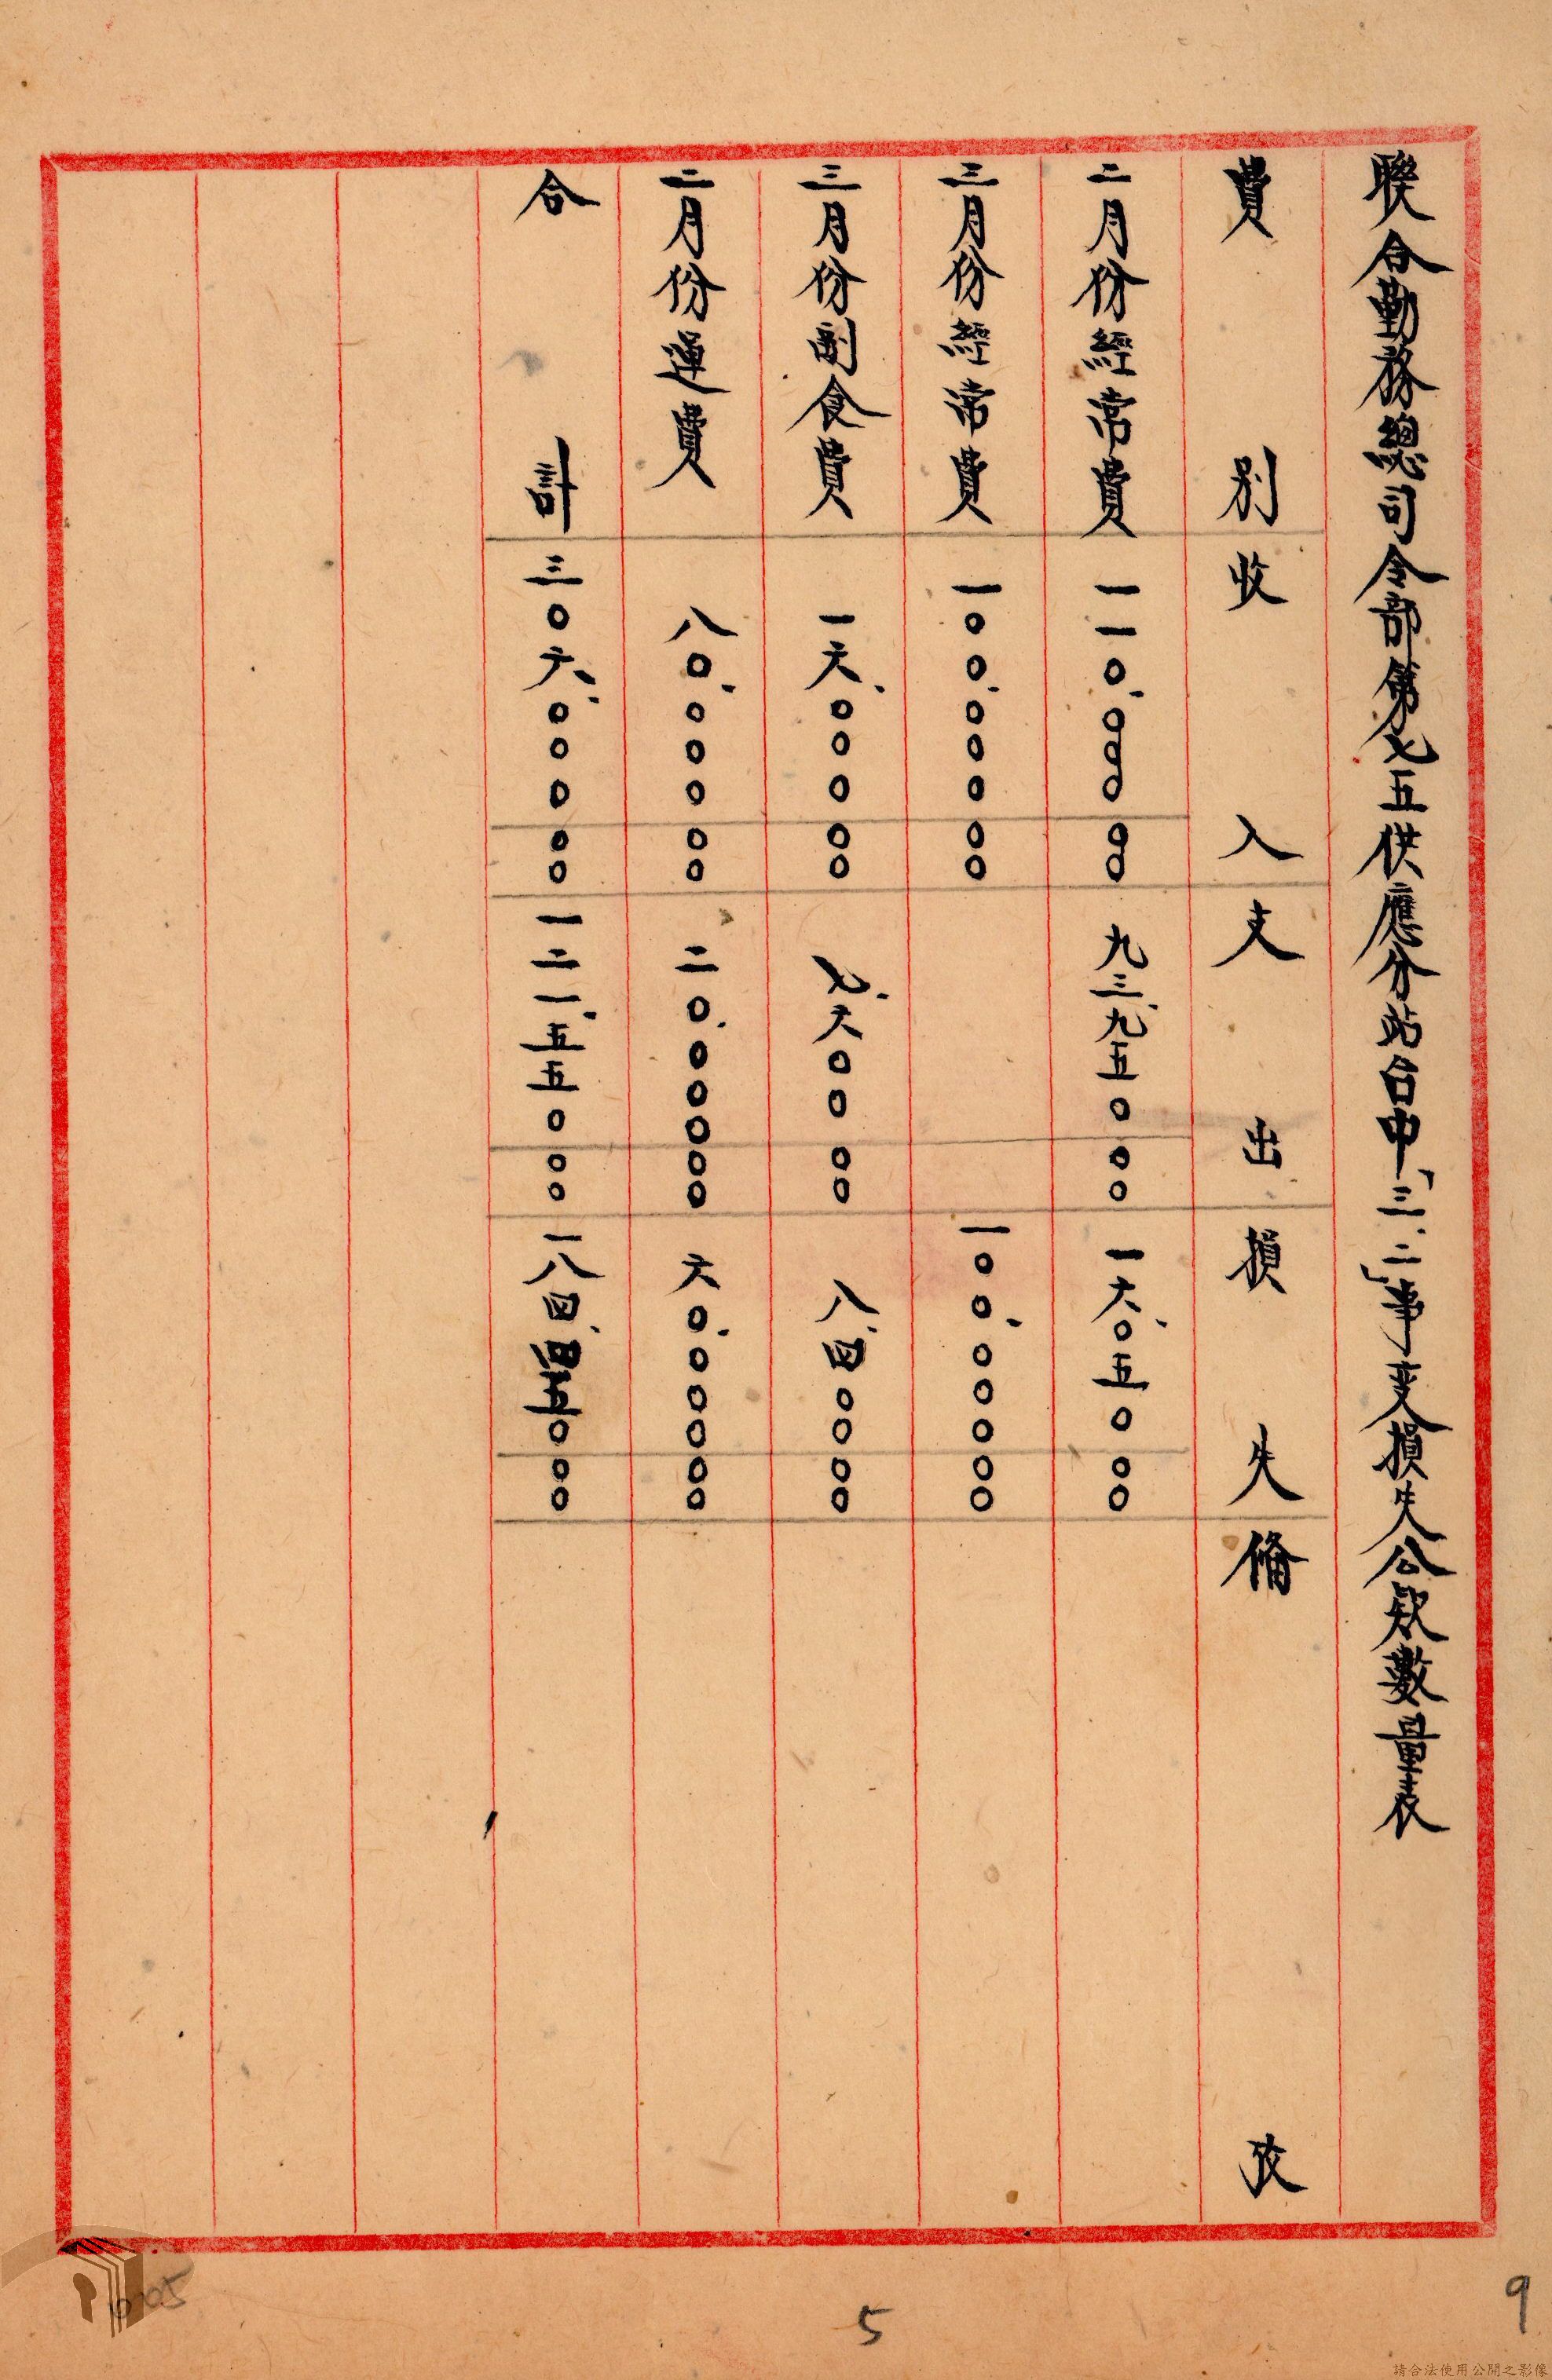 聯合勤務總司令部第七五供應分站台中「三.二」事变損失公欵數量表
費別 收入 支出 損失 偹攷
二月份經常費 一一〇.〇〇〇〇〇 九三.九五〇〇〇 一六.〇五〇〇〇
三月份經常費 一〇〇.〇〇〇〇〇 一〇〇.〇〇〇〇〇
三月份副食費 一六.〇〇〇〇〇 七.六〇〇〇〇 八.四〇〇〇〇
二月份運費 八〇.〇〇〇〇〇 二〇.〇〇〇〇〇 六〇.〇〇〇〇〇
合計 三〇六.〇〇〇〇〇 一二一.五五〇〇〇 一八四.四五〇〇〇
9
5
請合法使用公開之影像